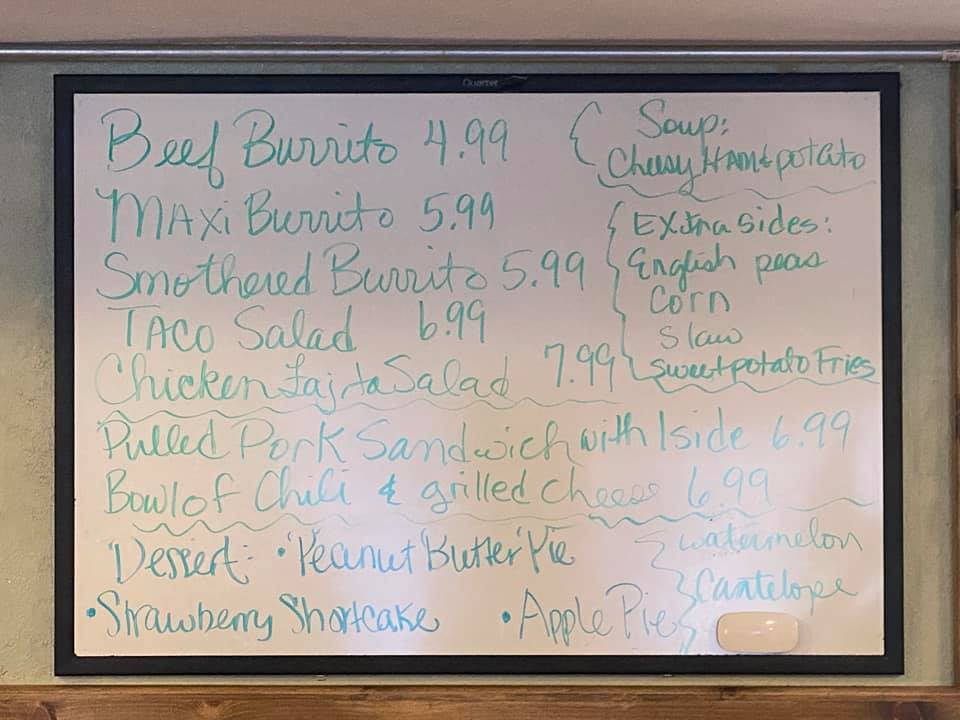 Quartet
Beef Burrito 4.99
MAXi Burrito 5.99
Smothered Burrito 5.99
TACO Salad 6.99
Chicken Fajita Salad 7.99
Soup:
Cheesy HAM & potato
Extra Sides:
English peas
Corn
Slaw
Sweet potato Fries
Pulled Pork Sandwich with 1 side 6.99
Bowl of Chili & grilled cheese 6.99
Dessert: • Peanut Butter Pie
• Strawberry Shortcake • Apple Pie
watermelon
Cantelope